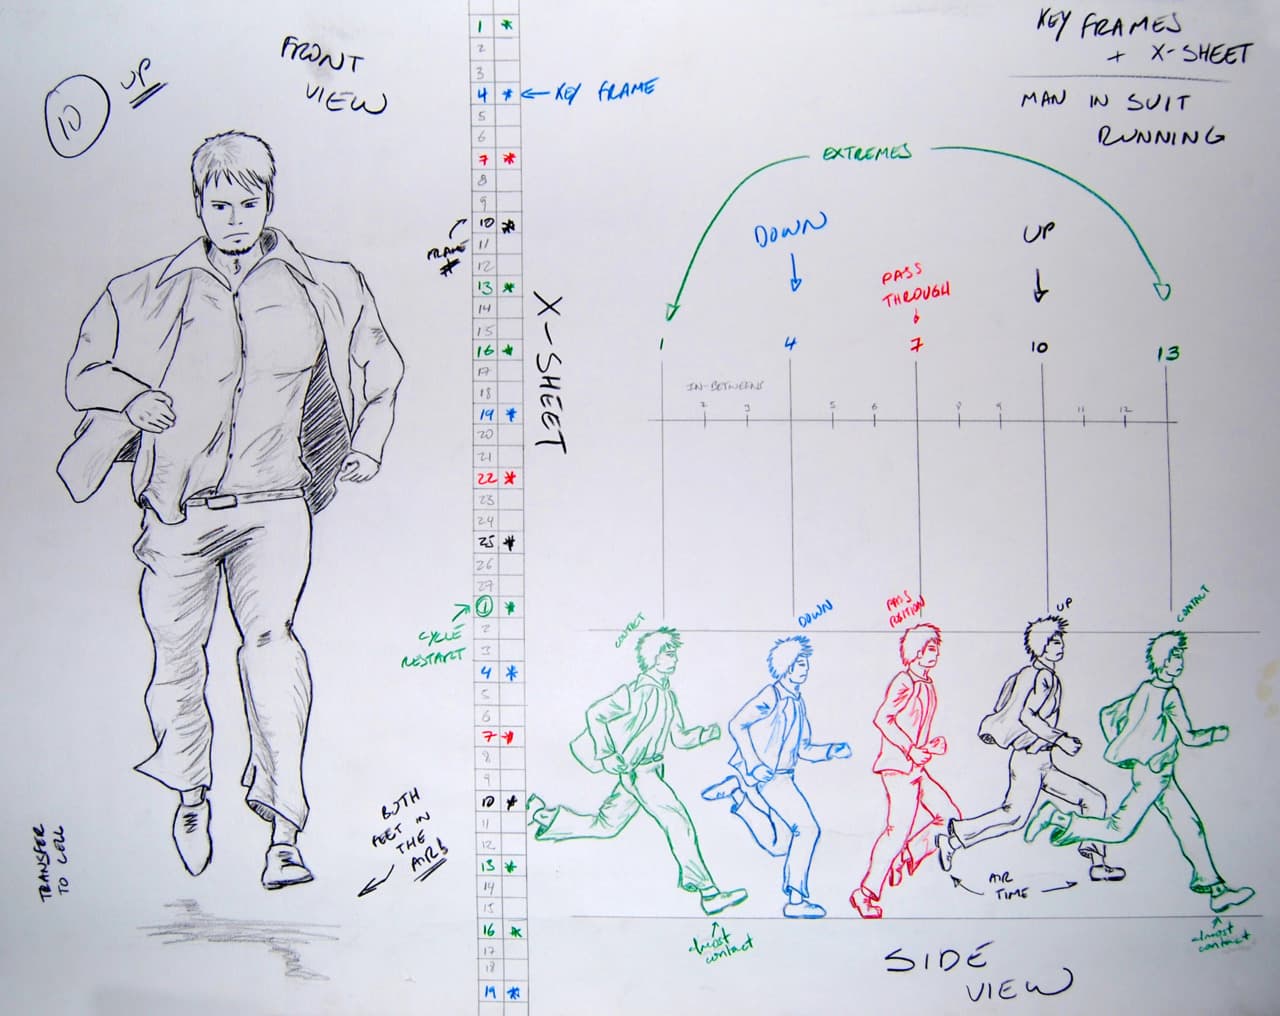 10
UP
FRONT
VIEW
KEY FRAMES
+ X-SHEET
MAN IN SUIT
RUNNING
1 *
2
3
4 * ← KEY FRAME
5
6
7 *
8
9
10 *
11
12
13 *
14
15
16 *
17
18
19 *
20
21
22 *
23
24
25 *
26
27
1 *
2
3
4 *
5
6
7 *
8
9
10 *
11
12
13 *
14
15
16 *
17
18
19 *
FRAME
#
X-SHEET
CYCLE
RESTART
BOTH
FEET IN
THE
AIR!
TRANSFER
TO CELL
EXTREMES
DOWN
UP
PASS
THROUGH
1
4
7
10
13
IN-BETWEENS
2 3 5 6 8 9 11 12
CONTACT
DOWN
PASS
POSITION
UP
CONTACT
AIR
TIME
almost
contact
almost
contact
SIDE
VIEW